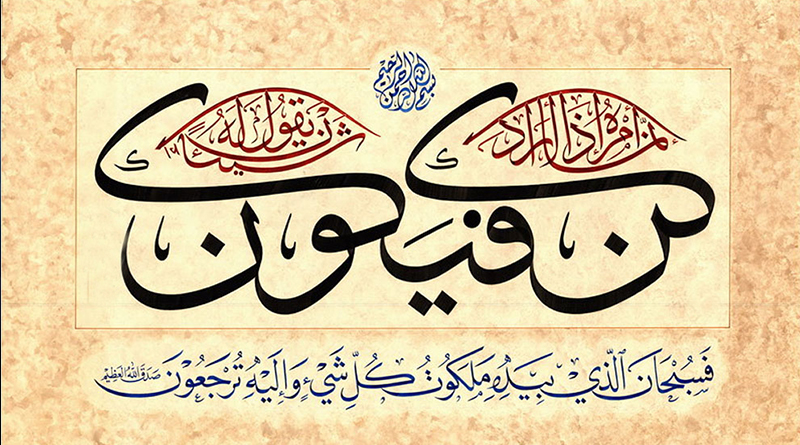 بسم الله الرحمن الرحيم
إنما أمره إذا أراد
شيئًا أن يقول له
كن فيكون
فَسُبْحَانَ ٱلَّذِي بِيَدِهِ مَلَكُوتُ كُلِّ شَيْءٍ وَإِلَيْهِ تُرْجَعُونَ صَدَقَ اللهُ العَظِيم